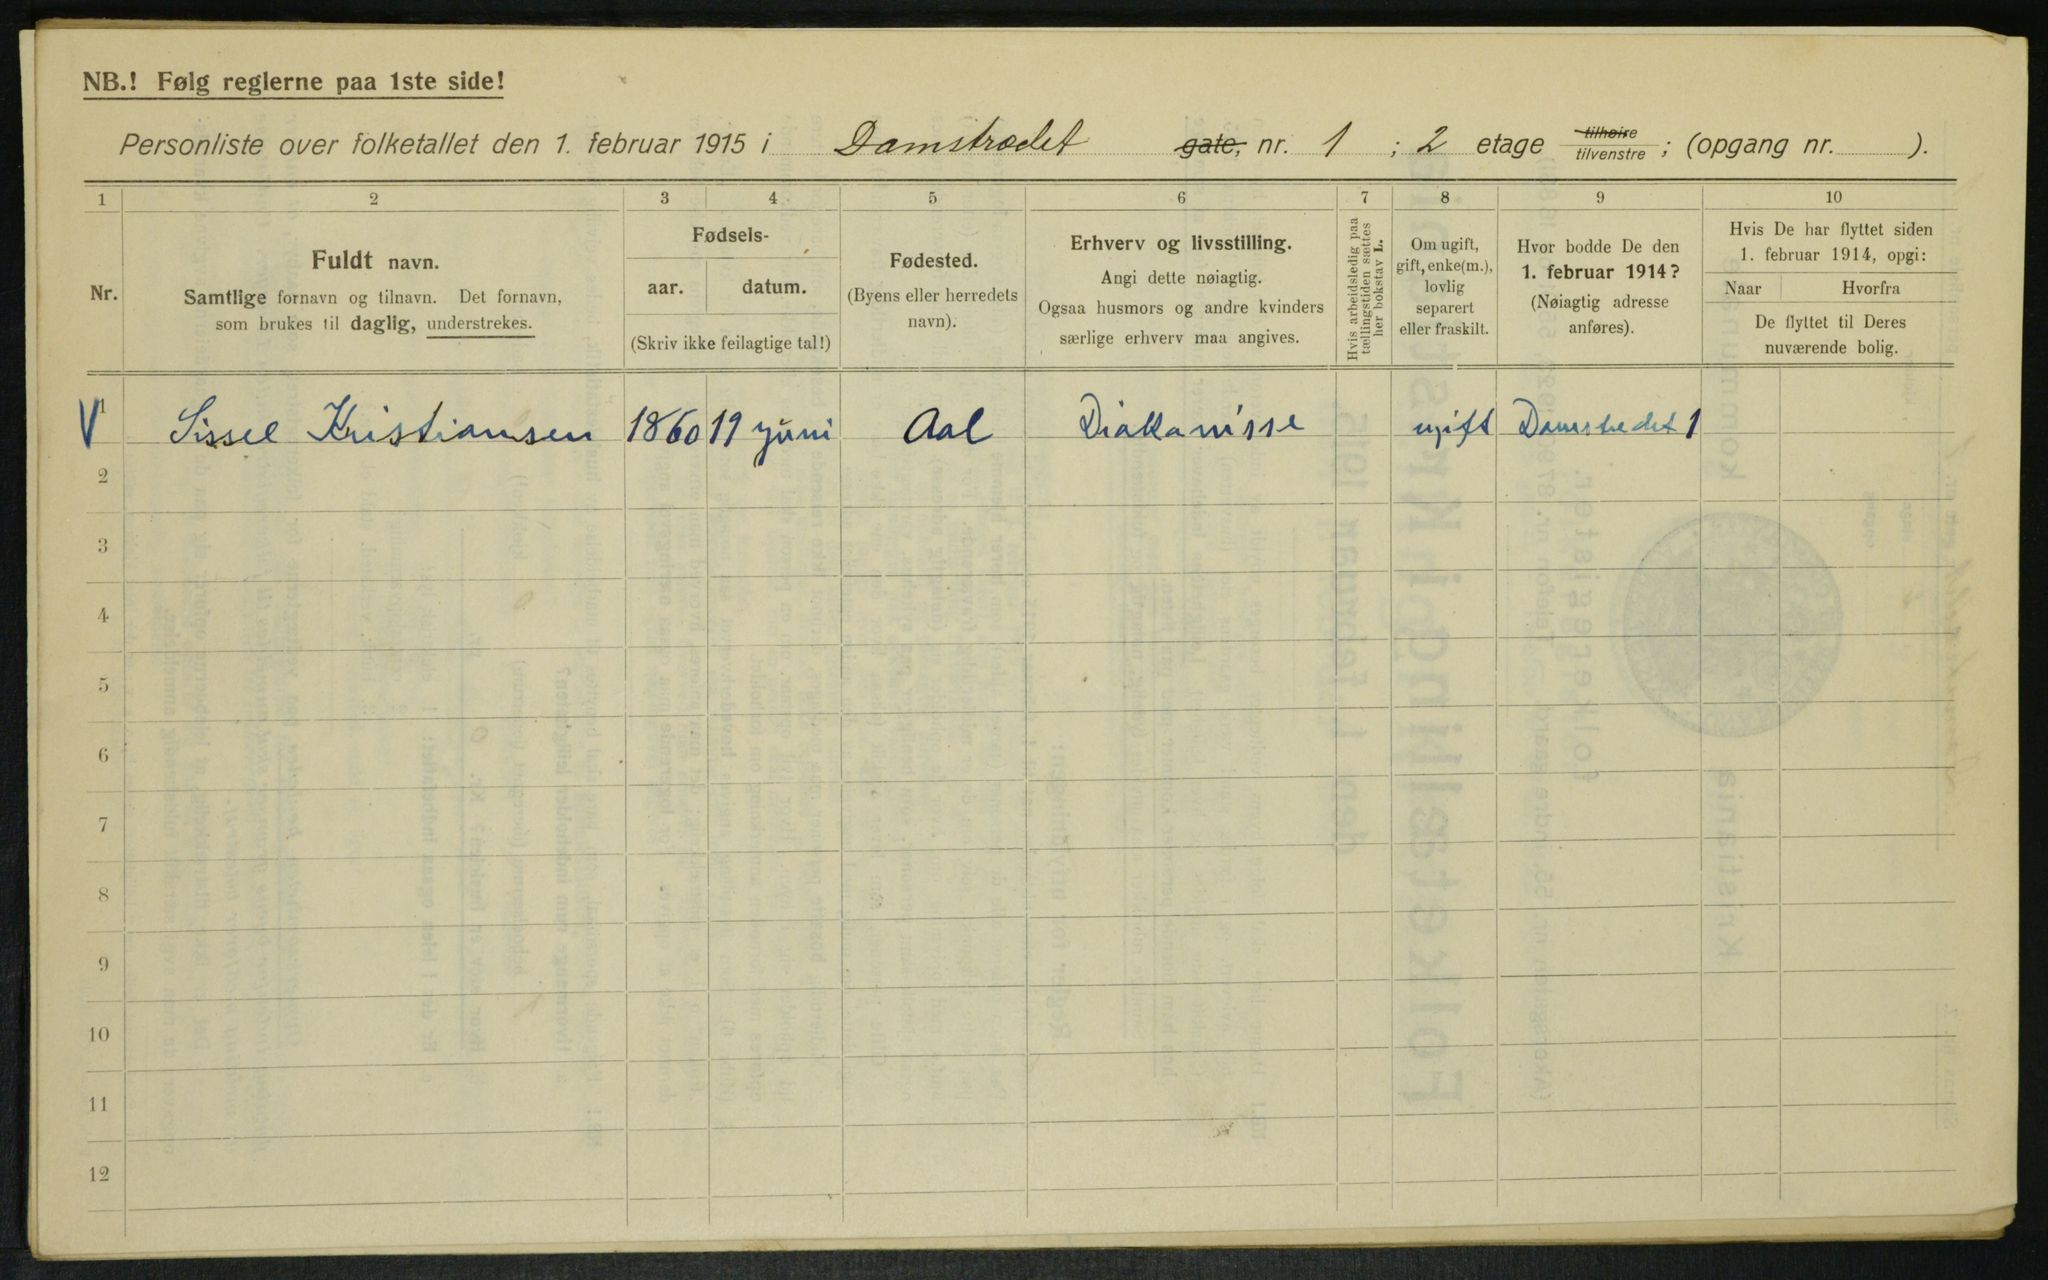 NB.! Følg reglerne paa 1ste side!
Personliste over folketallet den 1. februar 1915 i Damstrædet gate, nr. 1 ; 2 etage tilhøire tilvenstre ; (opgang nr. ).
1 2 3 4 5 6 7 8 9 10
Nr.
Fuldt navn.
Samtlige fornavn og tilnavn. Det fornavn,
som brukes til daglig, understrekes.
Fødsels-
aar. datum.
(Skriv ikke feilagtige tal!)
Fødested.
(Byens eller herredets
navn).
Erhverv og livsstilling.
Angi dette nøiagtig.
Ogsaa husmors og andre kvinders
særlige erhverv maa angives.
Hvis arbeidsledig paa
tællingstiden sættes
her bokstav L.
Om ugift,
gift, enke(m.),
lovlig
separert
eller fraskilt.
Hvor bodde De den
1. februar 1914?
(Nøiagtig adresse
anføres).
Hvis De har flyttet siden
1. februar 1914, opgi:
Naar Hvorfra
De flyttet til Deres
nuværende bolig.
V 1 Sissel Kristiansen 1860 19 juni Aal Diakanisse ugift Damstredet 1
2
3
4
5
6
7
8
9
10
11
12